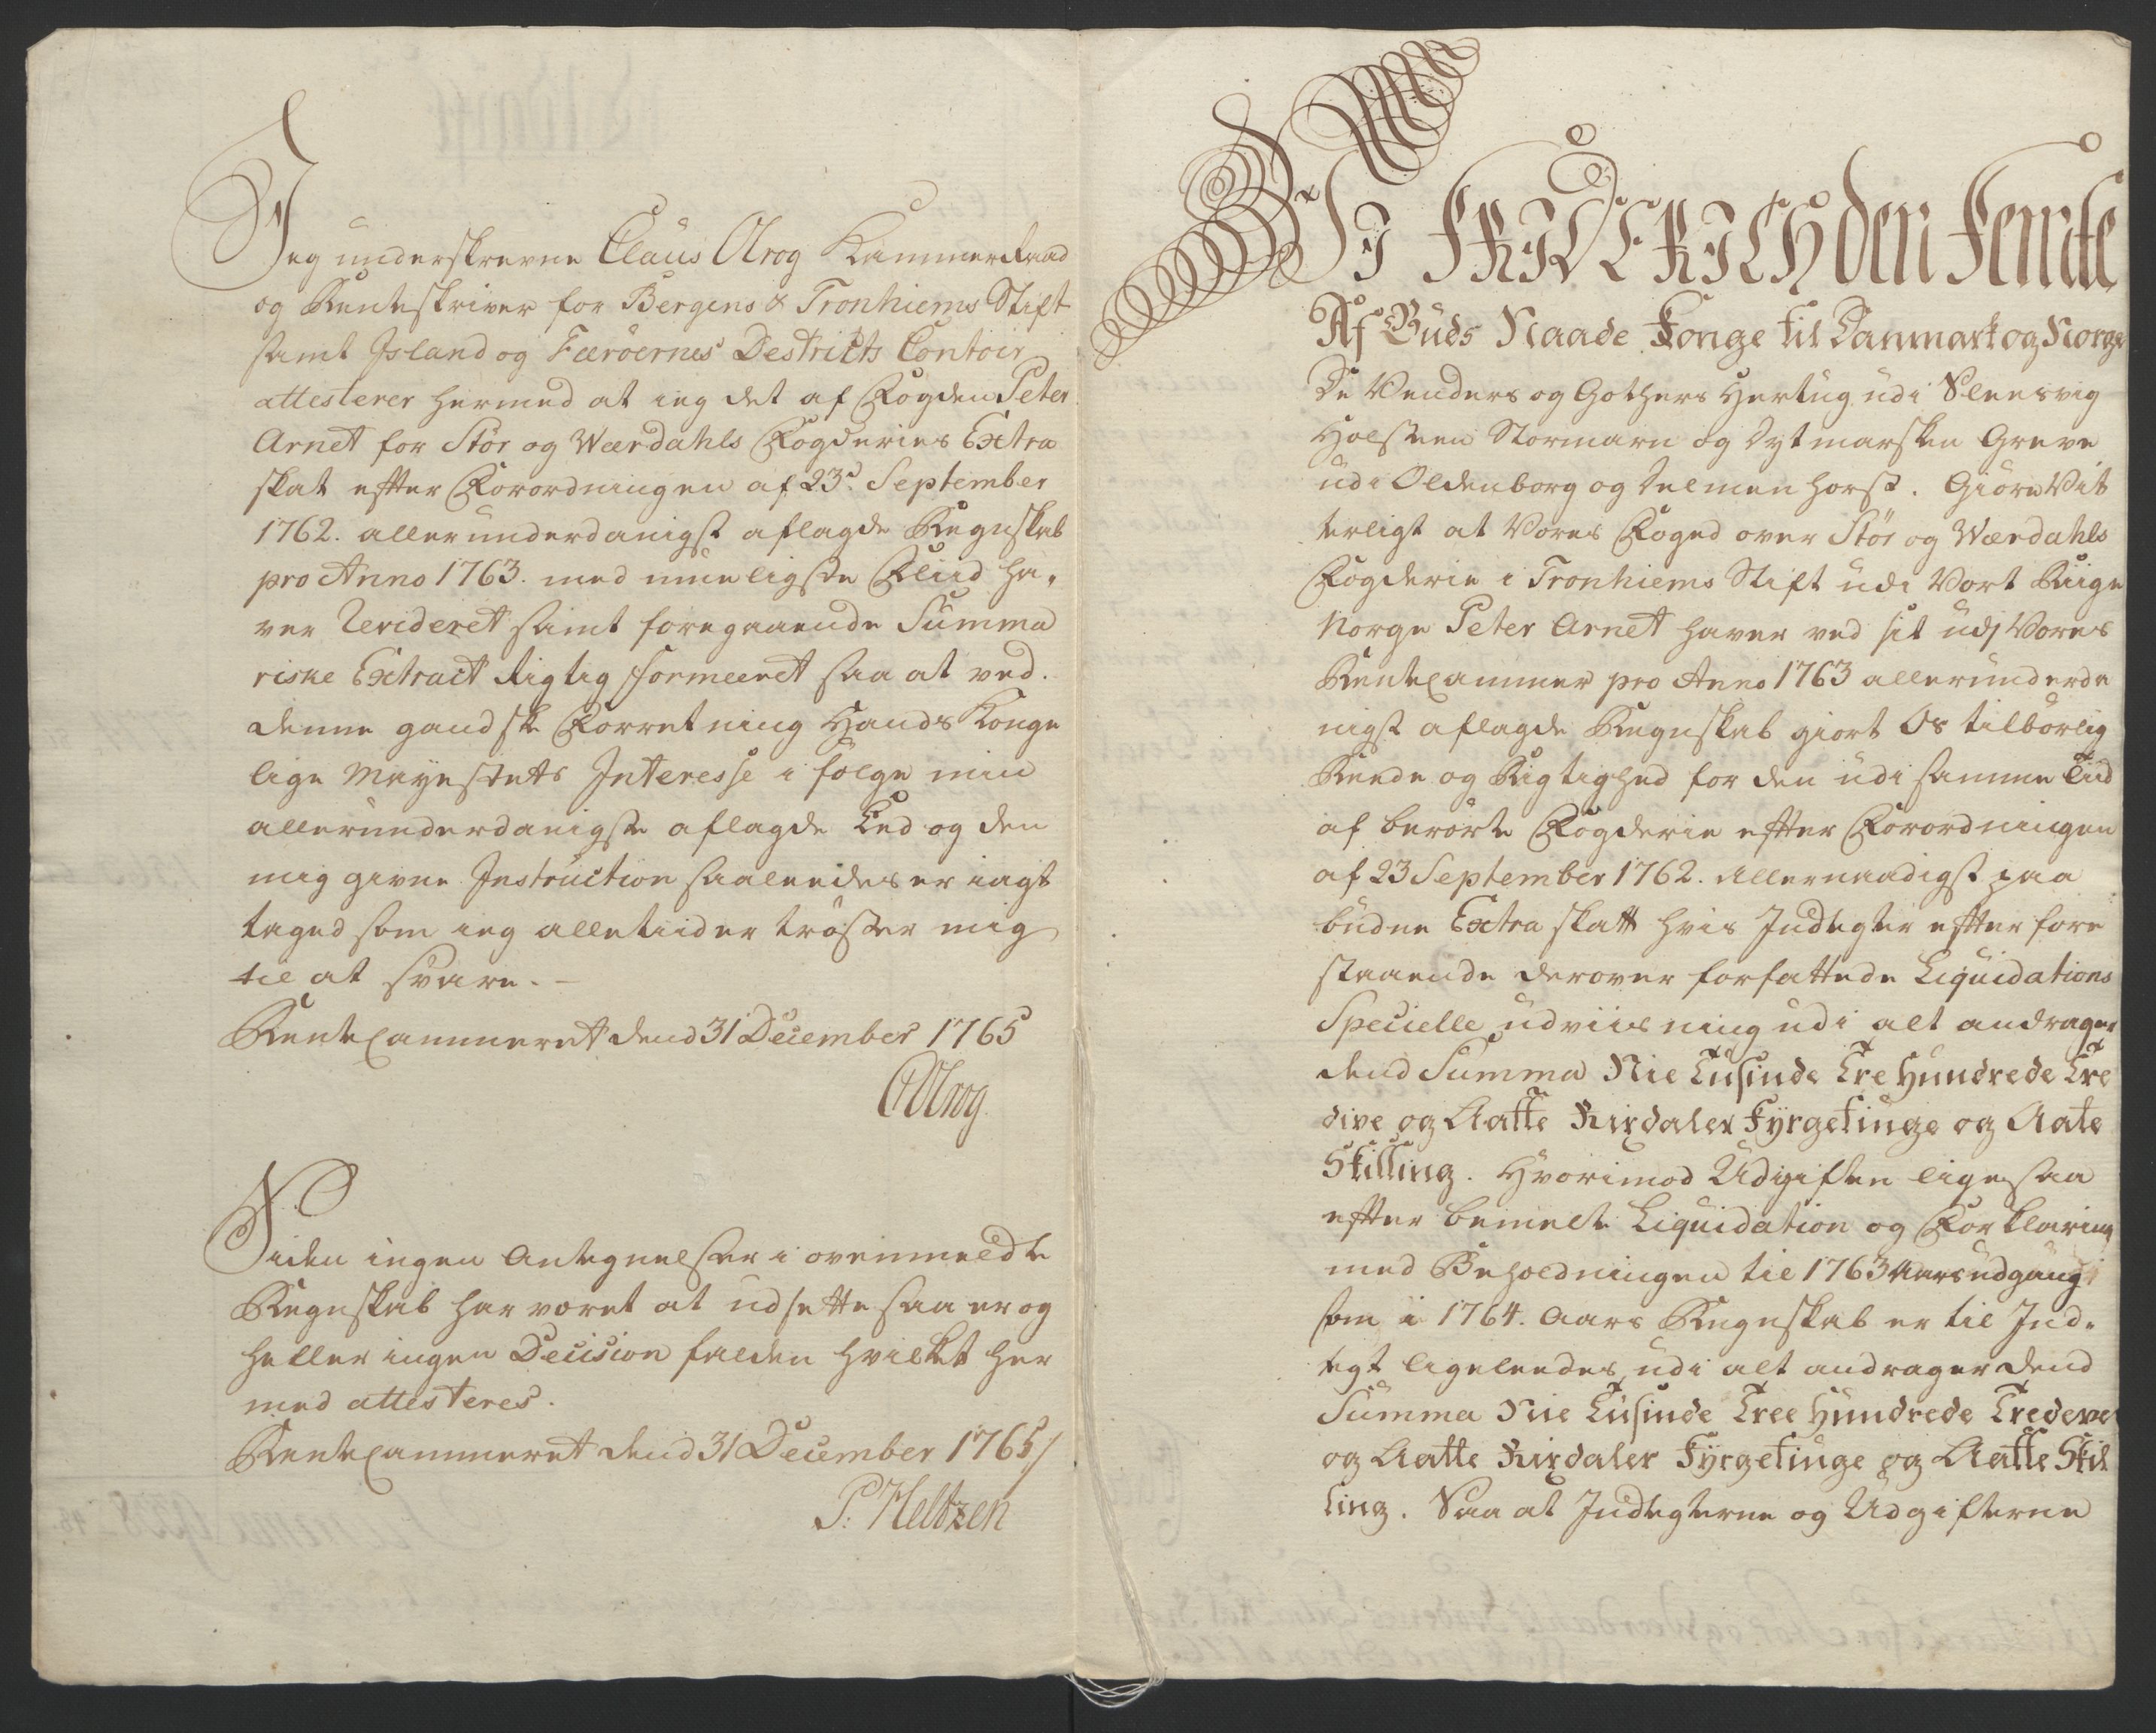 Jeg underskrevne Claus Olrog Kammerraad
og Renteskriver for Bergens & Tronhiems Stift
samt Island og Færöernes Destricts Contoir
attesterer hermed at ieg det af Fogden Peter
Arnet for Stör og Wærdahls Fogderies Extra
skat efter Forordningen af 23d. September
1762. allerunderdanigst aflagde Regnskab
pro Anno 1763. med mueligste Fliid ha,
ver Revideret samt foregaaende Summa
riske Extract rigtig Formeeret saa at ved
denne gandske Forretning Hands Konge
lige Mayestets Interesse i følge min
allerunderdanigste aflagde Eed og den
mig givne Instruction saaleedes er iagt
taged som ieg alletiider trøster mig
til at svare. –
RenteCammeret dend 31 December 1765
COlrog
Siden ingen Antegnelser i ovenmeldte
Regnskab har været at udsette saa er og
heller ingen Decision falden hvilket her
med attesteres.
RenteCammeret dend 31 December 1765/
P: Heltzen
Vi FRIDERICH den Femte
Af Guds Naade Konge til Danmark og Norge
De Venders og Gothers Hertug udi Sleesvig
Holsteen Stormarn og Dytmarsken Greve
udi Oldenborg og Delmenhorst. Giøre Vit
terligt at Vores Foged over Stör og Wærdahls
Fogderie i Tronhiems Stift udi Vort Riige
Norge Peter Arnet haver ved sit udj Vores
RenteCammer pro Anno 1763 allerunderda
nigst aflagde Regnskab giort Os tilbørlig
Reede og Rigtighed for den udi samme Tiid
af berørte Fogderie efter Forordningen
af 23 September 1762. Allernaadigst paa
budne Extra skatt hvis Indtegter efter fore
staaende derover forfattede Liquidations
Specielle udviisning udi alt andrager
dend Summa Nie Tusinde Tre Hundrede Tre
dive og Aatte Rixdaler Fyrgetinge og Aate
Skilling. Hvorimod Udgiften ligesaa
efter bemelte Liquidation og Forklaring
med Beholdningen til 1763 Aars udgang
som i 1764. Aars Regnskab er til Ind,
tegt ligeleedes udi alt andrager dend
Summa Nie Tusinde Tree Hundrede Tredeve
og Aatte Rixdaler Fyrgetinge og Aatte Skil
ling. Saa at Indtegterne og Udgifterne